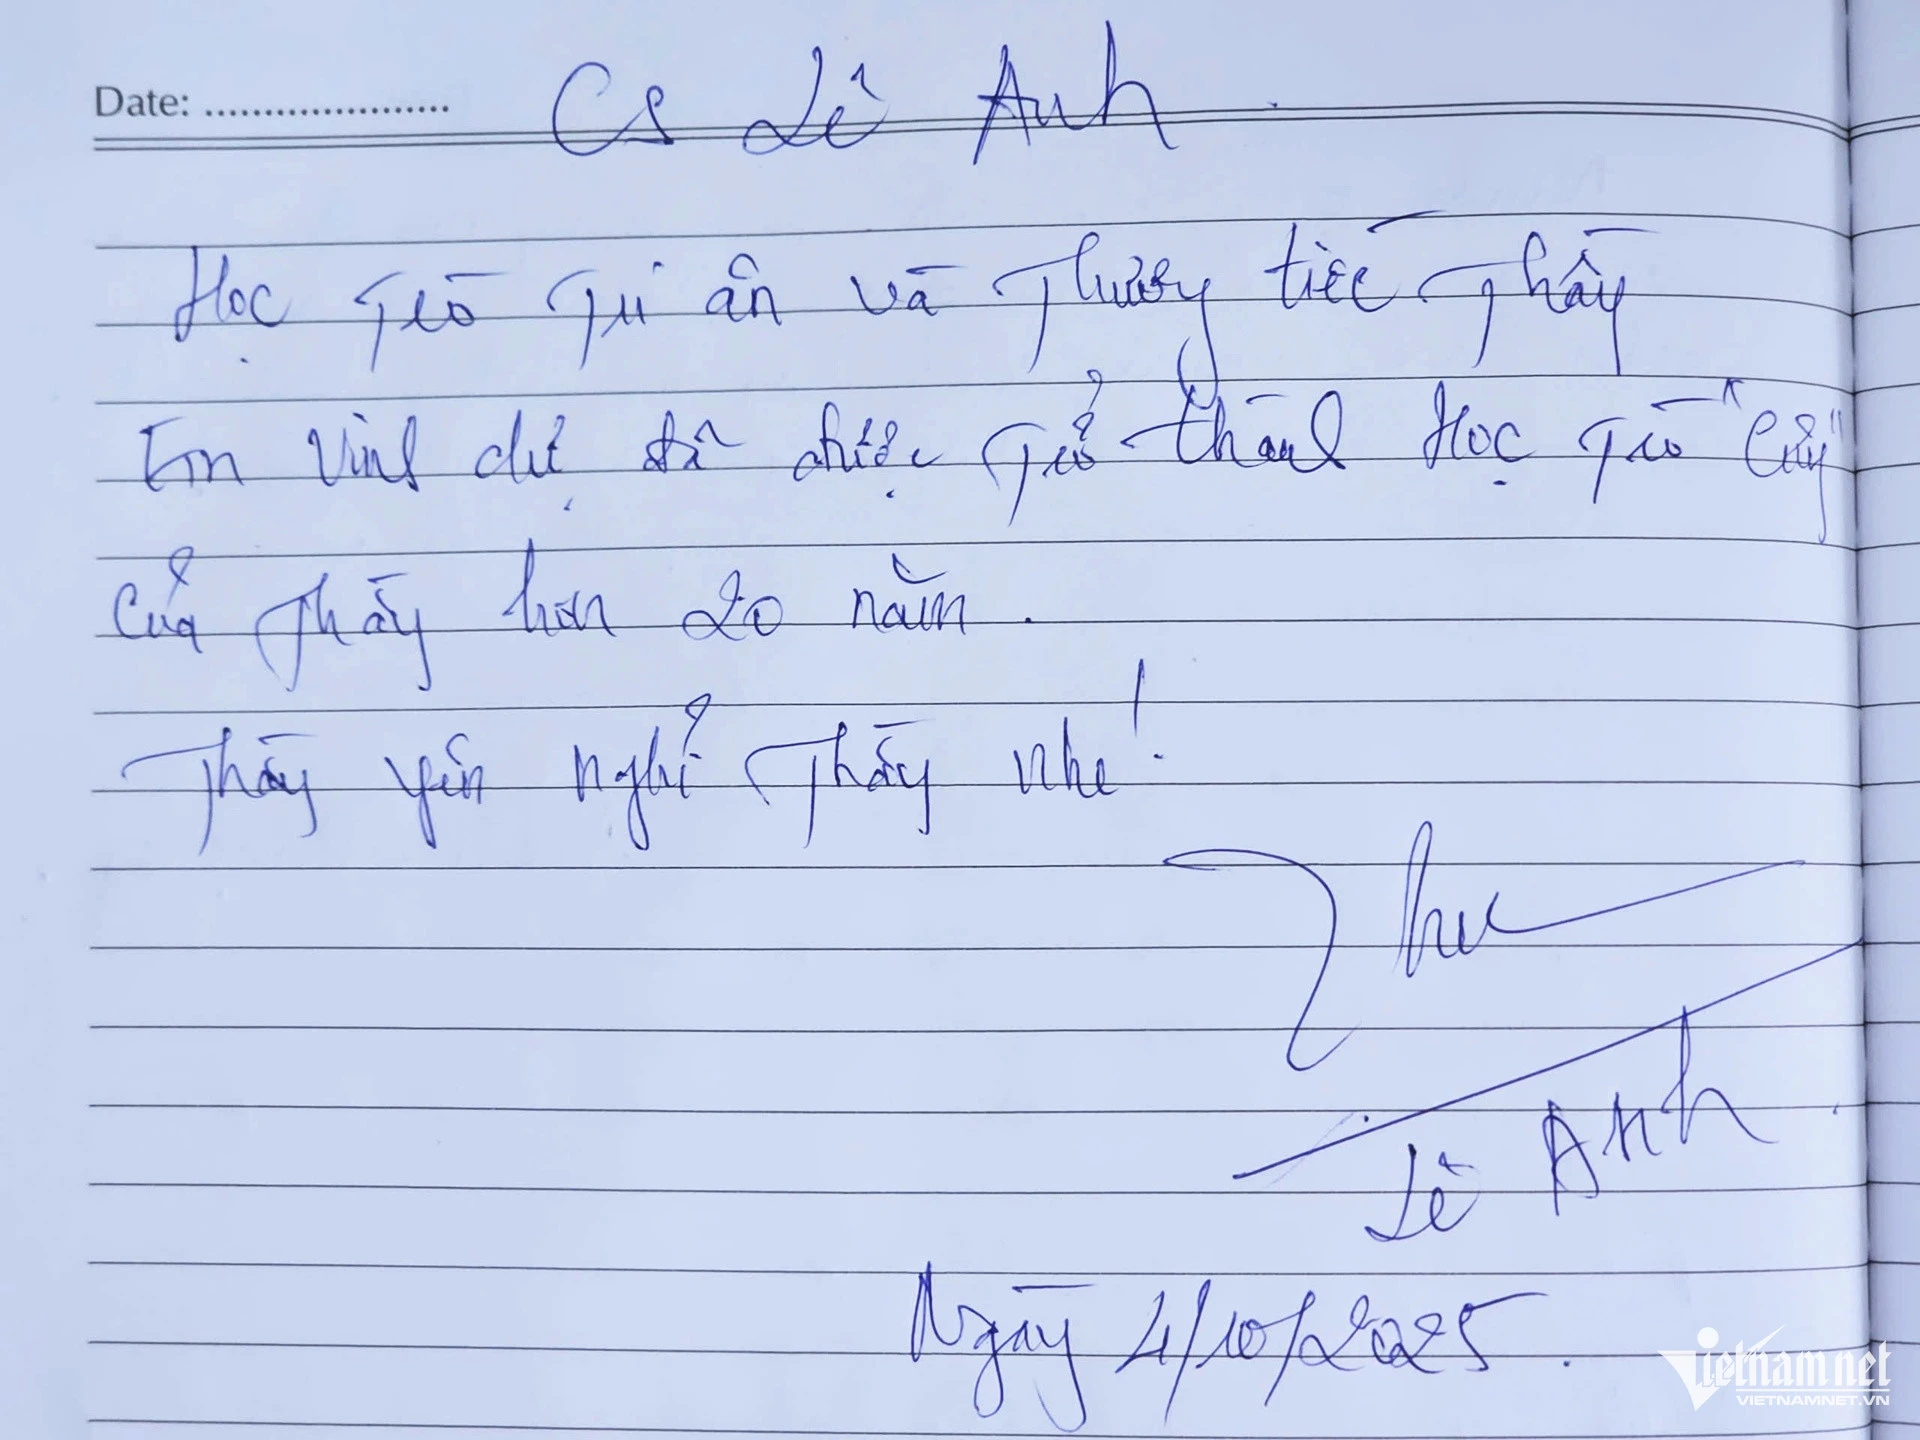 Date: .....................
Cs Lê Anh
Học trò tri ân và Thương tiếc Thầy
Em vinh dự đã được trở thành Học trò "Cưng"
của Thầy hơn 20 năm.
Thầy yên nghỉ Thầy nhé!
Lê Anh
Ngày 4/10/2025.
Vietnamnet
VIETNAMNET.VN